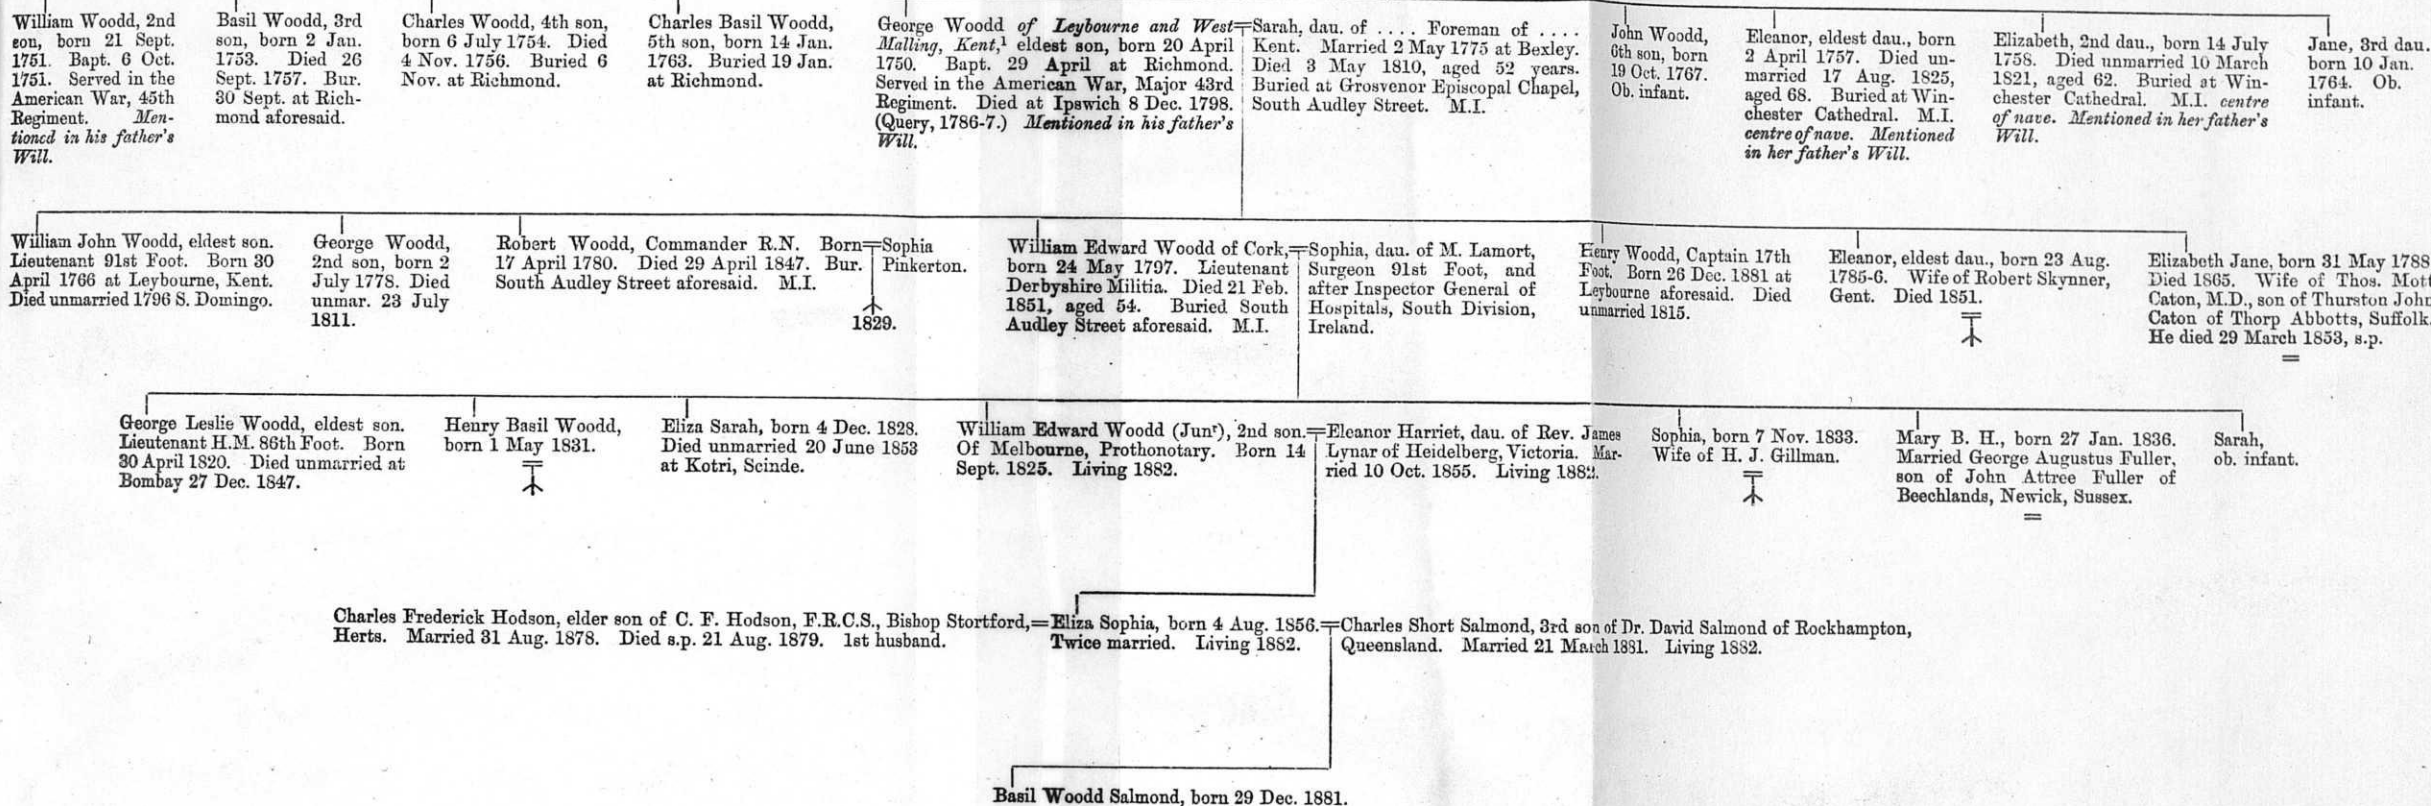 William Woodd, 2nd
son, born 21 Sept.
1751. Bapt. 6 Oct.
1751. Served in the
American War, 45th
Regiment. Men-
tioned in his father's
Will.
Basil Woodd, 3rd
son, born 2 Jan.
1753. Died 26
Sept. 1757. Bur.
30 Sept. at Rich-
mond aforesaid.
Charles Woodd, 4th son,
born 6 July 1754. Died
4 Nov. 1756. Buried 6
Nov. at Richmond.
Charles Basil Woodd,
5th son, born 14 Jan.
1763. Buried 19 Jan.
at Richmond.
George Woodd of Leybourne and West
Malling, Kent,¹ eldest son, born 20 April
1750. Bapt. 29 April at Richmond.
Served in the American War, Major 43rd
Regiment. Died at Ipswich 8 Dec. 1798.
(Query, 1786-7.) Mentioned in his father's
Will.
Sarah, dau. of .... Foreman of ....
Kent. Married 2 May 1775 at Bexley.
Died 3 May 1810, aged 52 years.
Buried at Grosvenor Episcopal Chapel,
South Audley Street. M.I.
John Woodd,
6th son, born
19 Oct. 1767.
Ob. infant.
Eleanor, eldest dau., born
2 April 1757. Died un-
married 17 Aug. 1825,
aged 68. Buried at Win-
chester Cathedral. M.I.
centre of nave. Mentioned
in her father's Will.
Elizabeth, 2nd dau., born 14 July
1758. Died unmarried 10 March
1821, aged 62. Buried at Win-
chester Cathedral. M.I. centre
of nave. Mentioned in her father's
Will.
Jane, 3rd dau.
born 10 Jan.
1764. Ob.
infant.
William John Woodd, eldest son.
Lieutenant 91st Foot. Born 30
April 1766 at Leybourne, Kent.
Died unmarried 1796 S. Domingo.
George Woodd,
2nd son, born 2
July 1778. Died
unmar. 23 July
1811.
Robert Woodd, Commander R.N. Born
17 April 1780. Died 29 April 1847. Bur.
South Audley Street aforesaid. M.I.
Sophia
Pinkerton.
1829.
William Edward Woodd of Cork,
born 24 May 1797. Lieutenant
Derbyshire Militia. Died 21 Feb.
1851, aged 54. Buried South
Audley Street aforesaid. M.I.
Sophia, dau. of M. Lamort,
Surgeon 91st Foot, and
after Inspector General of
Hospitals, South Division,
Ireland.
Henry Woodd, Captain 17th
Foot. Born 26 Dec. 1881 at
Leybourne aforesaid. Died
unmarried 1815.
Eleanor, eldest dau., born 23 Aug.
1785-6. Wife of Robert Skynner,
Gent. Died 1851.
Elizabeth Jane, born 31 May 1788
Died 1865. Wife of Thos. Mott
Caton, M.D., son of Thurston John
Caton of Thorp Abbotts, Suffolk.
He died 29 March 1853, s.p.
=
George Leslie Woodd, eldest son.
Lieutenant H.M. 86th Foot. Born
30 April 1820. Died unmarried at
Bombay 27 Dec. 1847.
Henry Basil Woodd,
born 1 May 1831.
Eliza Sarah, born 4 Dec. 1828.
Died unmarried 20 June 1853
at Kotri, Scinde.
William Edward Woodd (Junr), 2nd son.
Of Melbourne, Prothonotary. Born 14
Sept. 1825. Living 1882.
Eleanor Harriet, dau. of Rev. James
Lynar of Heidelberg, Victoria. Mar-
ried 10 Oct. 1855. Living 1882.
Sophia, born 7 Nov. 1833.
Wife of H. J. Gillman.
Mary B. H., born 27 Jan. 1836.
Married George Augustus Fuller,
son of John Attree Fuller of
Beechlands, Newick, Sussex.
=
Sarah,
ob. infant.
Charles Frederick Hodson, elder son of C. F. Hodson, F.R.C.S., Bishop Stortford,=
Herts. Married 31 Aug. 1878. Died s.p. 21 Aug. 1879. 1st husband.
Eliza Sophia, born 4 Aug. 1856.
Twice married. Living 1882.
Charles Short Salmond, 3rd son of Dr. David Salmond of Rockhampton,
Queensland. Married 21 March 1881. Living 1882.
Basil Woodd Salmond, born 29 Dec. 1881.